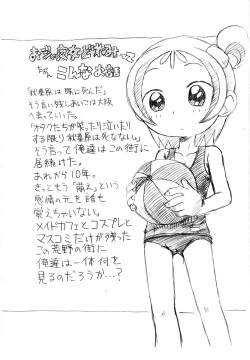 おジャ魔女どれみって
こんなお話
「秋葉原は既に死んだ」
そう言い残しあいこは大阪
へ去っていった。
「オタクたちが笑ったり泣いたり
する限り秋葉原は死なない」
そう言って俺達はこの街に
居続けた。
あれから10年。
きっともう「萌え」という
感情の元を誰も
覚えちゃいない。
メイドカフェとコスプレと
マスコミだけが残った
この荒野の街に
俺達は一体何を
見るのだろうか…？